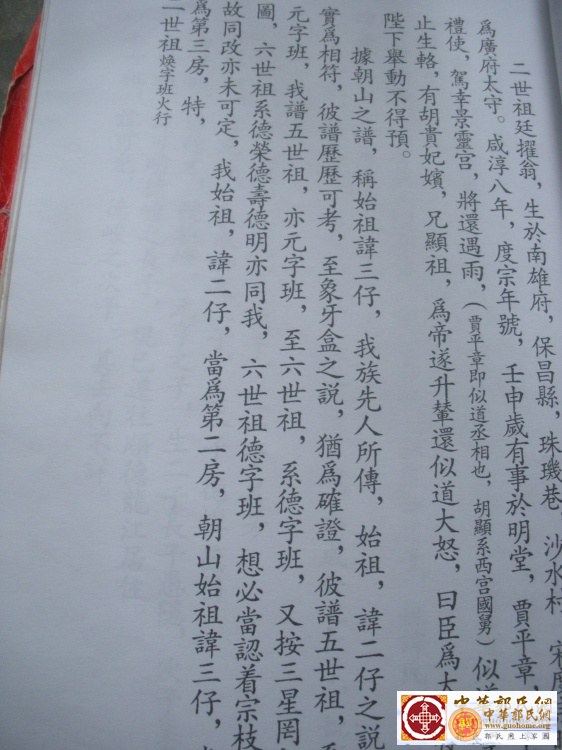 二世祖廷擢翁，生於南雄府，保昌縣，珠璣巷，沙水村
為廣府太守。咸淳八年，度宗年號，壬申歲有事於明堂，賈平章，
禮使，駕幸景靈宮，將還遇雨，（賈平章即似道丞相也，胡顯系西宮國舅）似
止生輅，有胡貴妃嬪，兄顯祖，為帝遂升輦還似道大怒，曰臣為大
陛下舉動不得預。
據朝山之譜，稱始祖諱三仔，我族先人所傳，始祖，諱二仔之說
實為相符，彼譜歷歷可考，至象牙盒之說，猶為確證，彼譜五世祖，
元字班，我譜五世祖，亦元字班，至六世祖，系德字班，又按三星罔
圖，六世祖系德榮德壽德明亦同我，六世祖德字班，想必當認着宗枝
故同改亦未可定，我始祖，諱二仔，當為第二房，朝山始祖諱三仔，
為第三房，特，
二世祖煥字班火行
中華郭氏網
中華郭氏網
www.guohome.org
郭氏網上家園